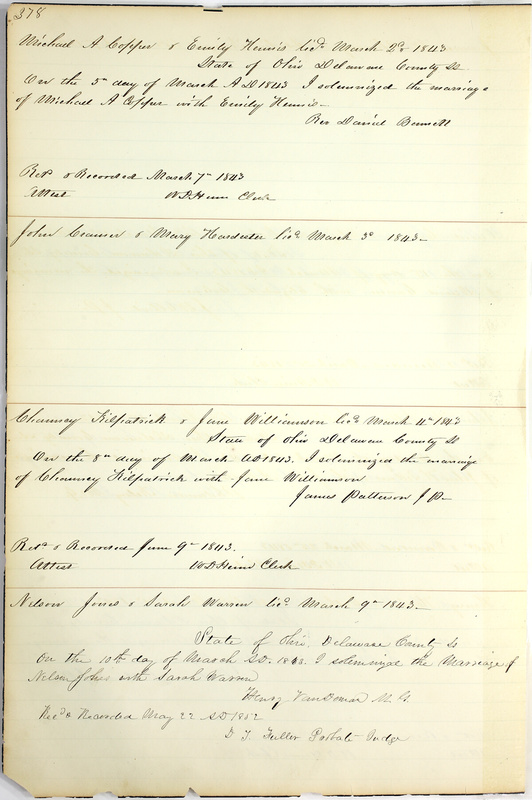 378
Michael A Copper & Emily Hemis Licd March 2d 1843
State of Ohio Delaware County Ss
On the 5th day of March AD 1843 I solemnized the marriage
of Michael A Copper with Emily Hemis
Rev Daniel Bennett
Retd & Recorded March 7th 1843
Attest W D Heim Clerk
John & Mary Licd March 3d 1843
Chauncy Kilpatrick & Jane Williamson Licd March 4th 1843
State of Ohio Delaware County Ss
On the 8th day of March AD 1843. I solemnized the marriage
of Chauncy Kilpatrick with Jane Williamson
James Patterson J P
Retd & Recorded June 9th 1843.
Attest W D Heim Clerk
Nelson Jones & Sarah Warren Licd March 9th 1843
State of Ohio, Delaware County Ss
On the 10th day of March AD. 1843. I solemnized the Marriage of
Nelson Jones with Sarah Warren
Henry M. G.
Rec'd & Recorded May 22 AD 1852
D T Fuller Probate Judge